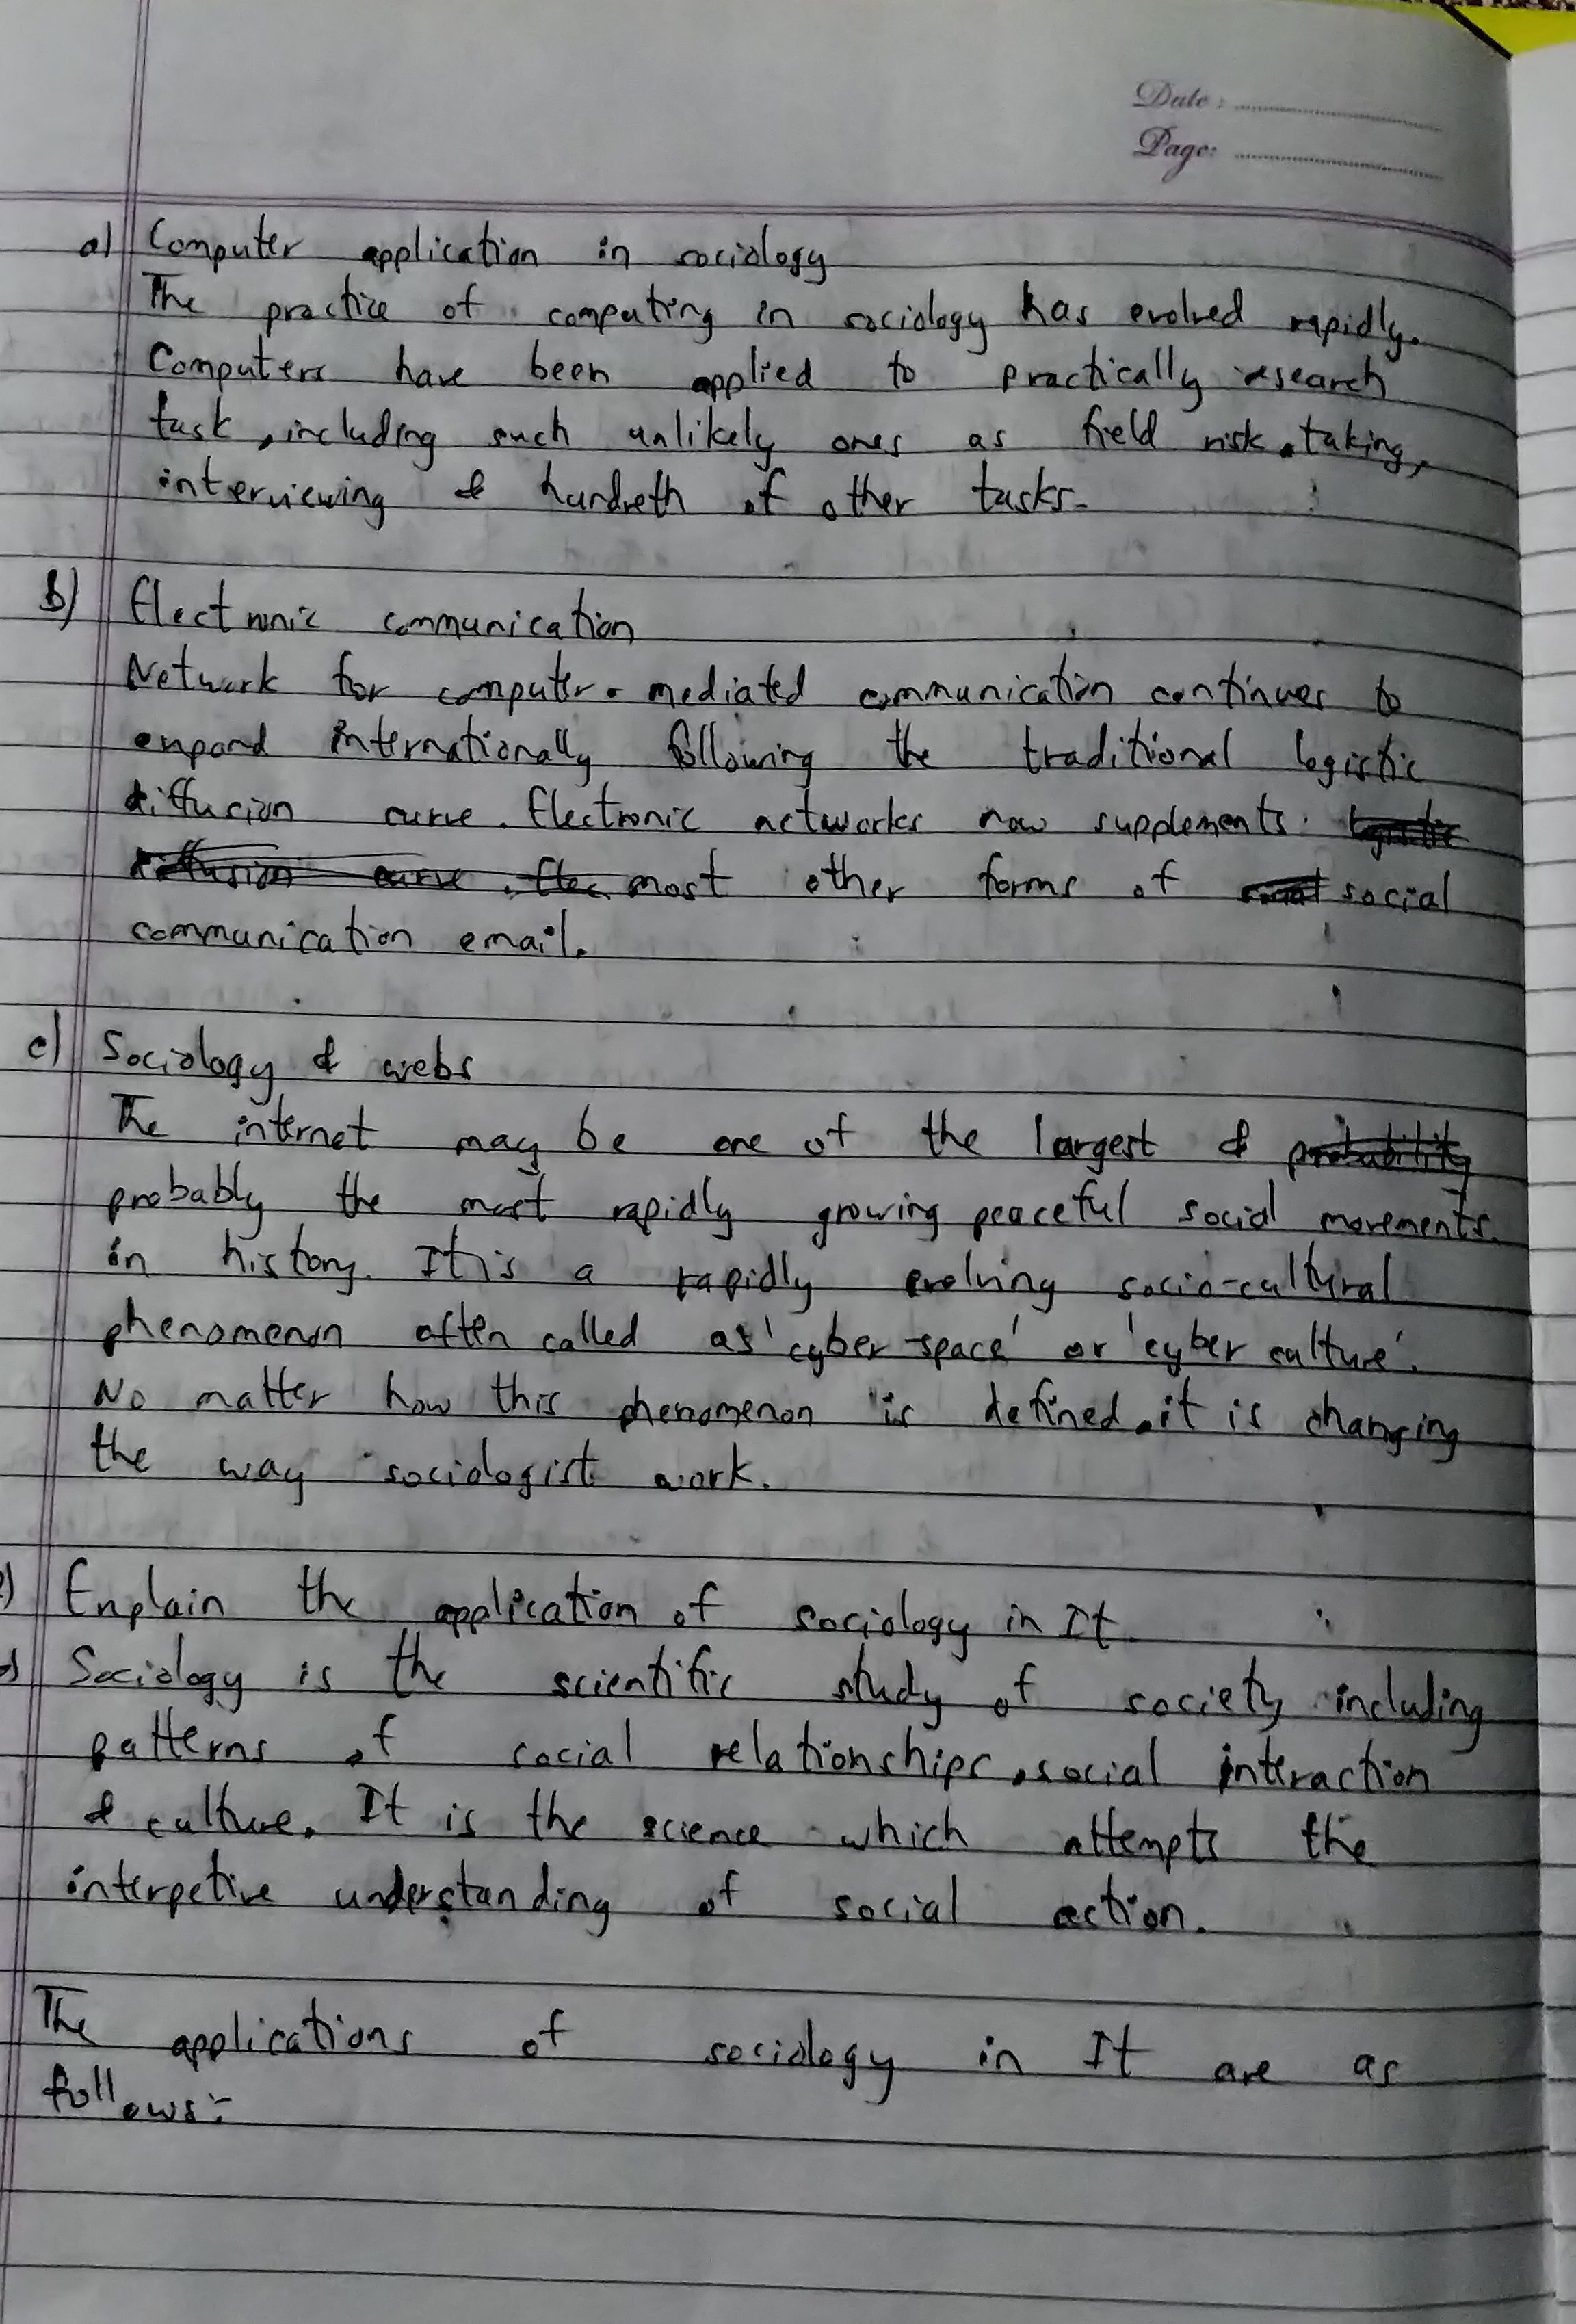 Date :
Page:
a) Computer application in sociology
The practice of computing in sociology has evolved rapidly.
Computers have been applied to practically research
task, including such unlikely ones as field risk, taking,
interviewing & hundreth of other tasks.
b) Electronic communication
Network for computer - mediated communication continues to
expand internationally following the traditional logistic
diffusion curve. Electronic networks now supplements
most other forms of social
communication email.
c) Sociology & webs
The internet may be one of the largest & probability
probably the most rapidly growing peaceful social movements
in history. It is a rapidly evolving socio-cultural
phenomenon often called as 'cyber space' or 'cyber culture'.
No matter how this phenomenon is defined, it is changing
the way sociologist work.
Explain the application of sociology in It.
Sociology is the scientific study of society including
patterns of social relationships, social interaction
& culture. It is the science which attempts the
interpetive understanding of social action.
The applications of sociology in It are as
follows:-